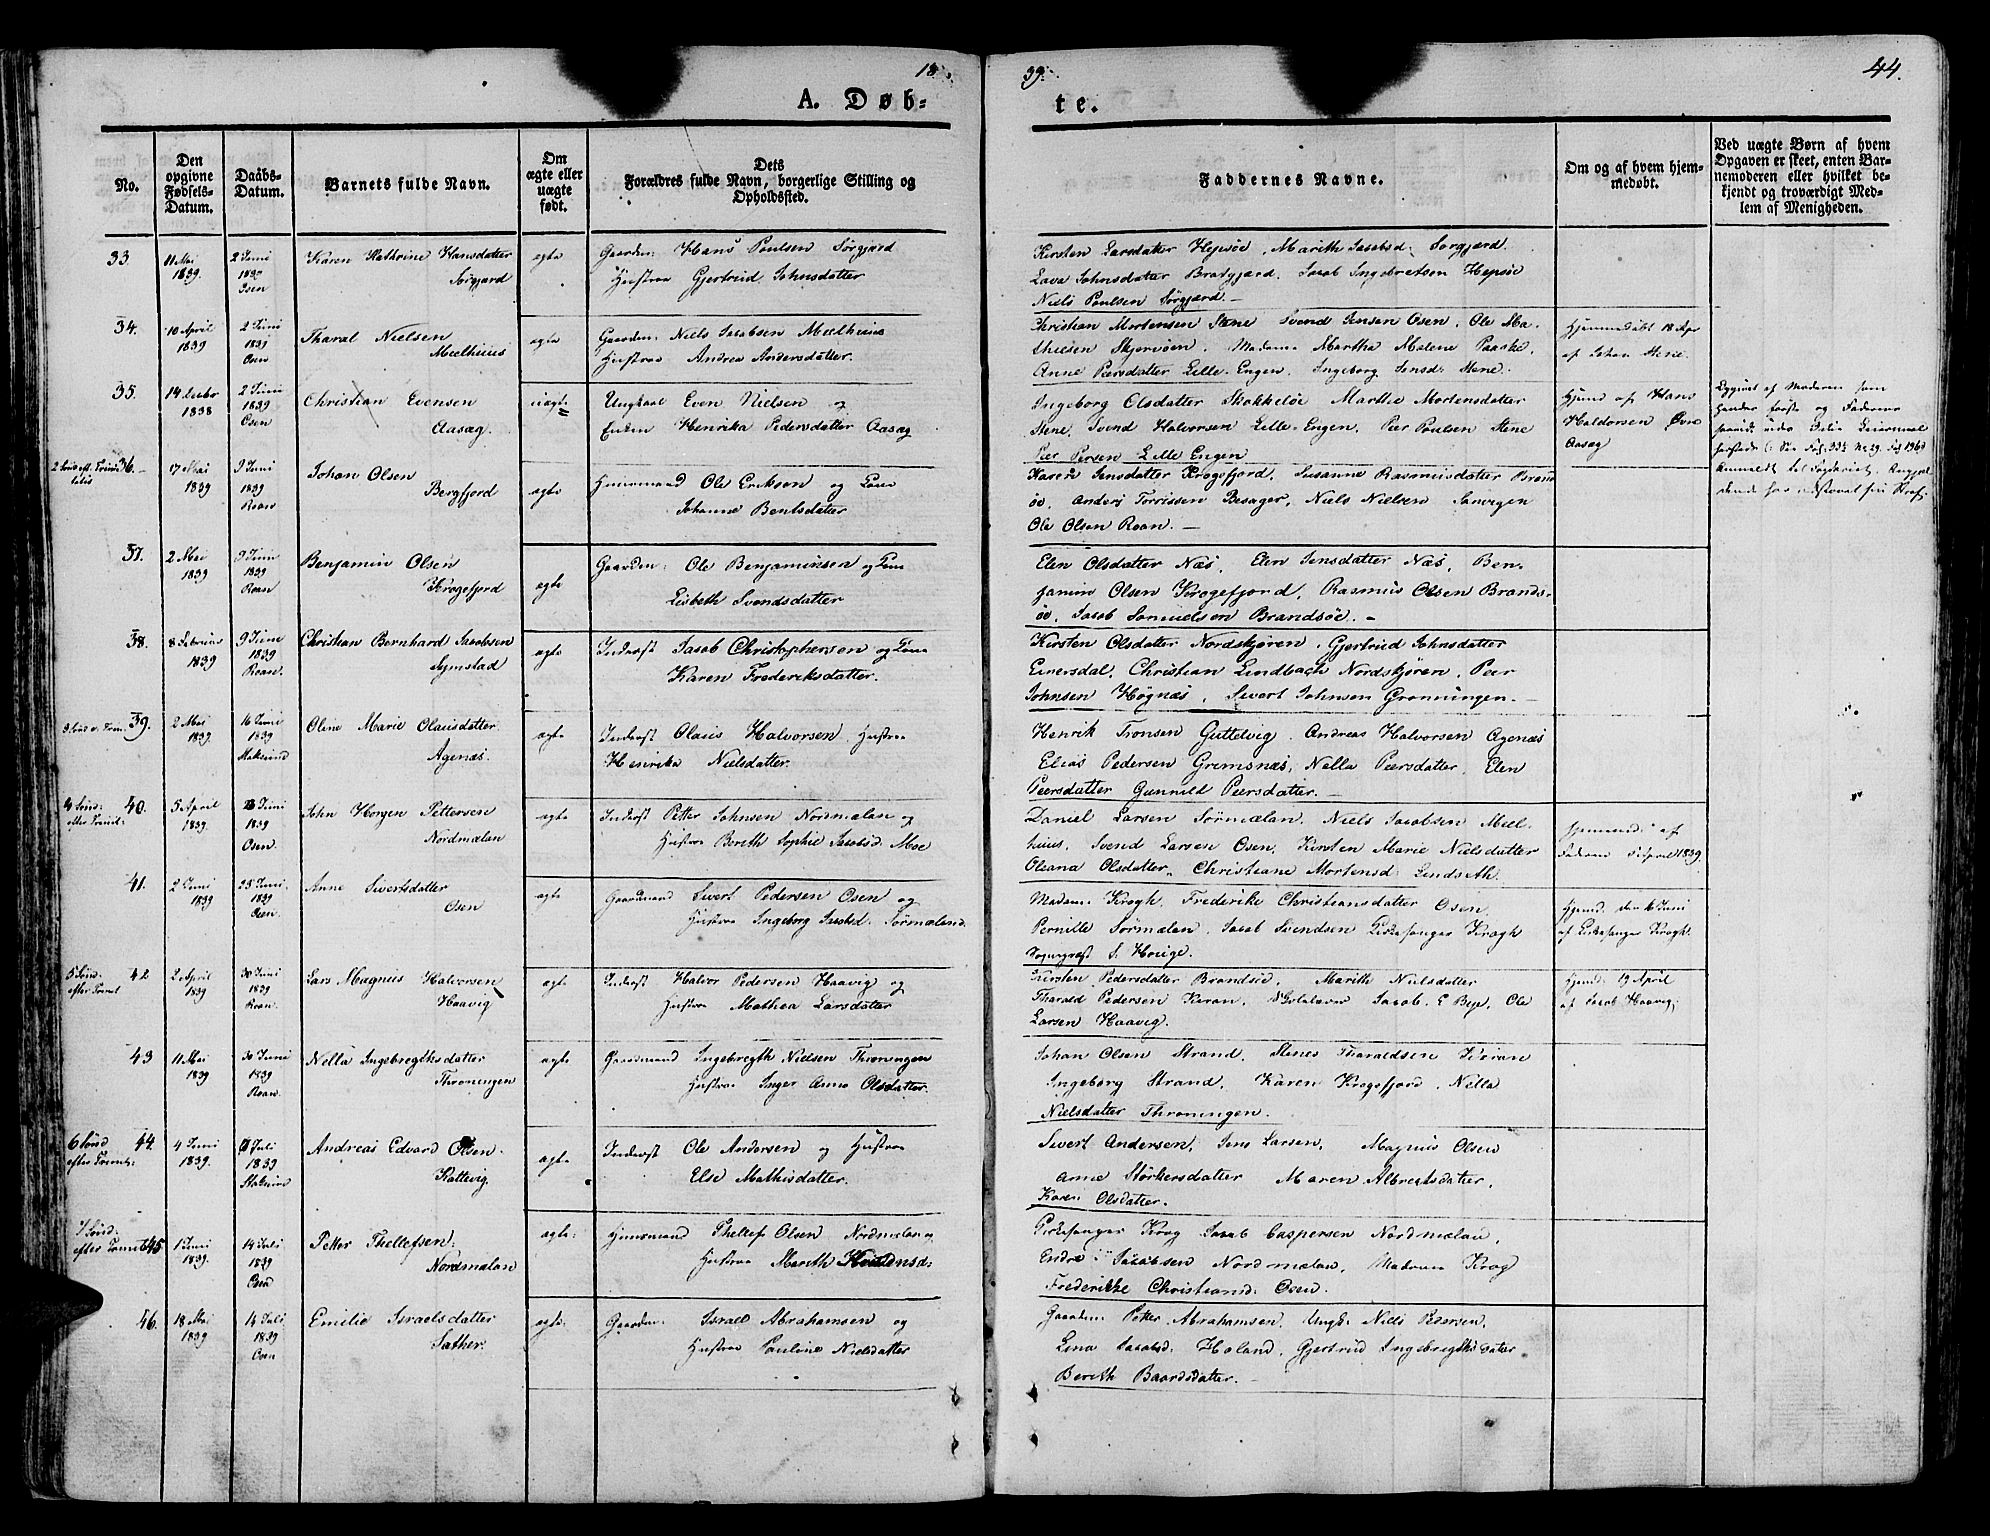 18
39.
44.
A. Døb-
te.
No.
Den opgivne Fødsels-Datum.
Daabs-Datum.
Barnets fulde Navn.
Om ægte eller uægte født.
Dets Forældres fulde Navn, borgerlige Stilling og Opholdssted.
Faddernes Navne.
Om og af hvem hjem-medøbt.
Ved uægte Børn af hvem Opgaven er skeet, enten Bar-nemoderen eller hvilket be-kjendt og troværdigt Med-lem af Menigheden.
33. 11 Mai 1839. 2 Juni Osen Karen Kathrine Hansdatter Sørgjærd ægte
Gaardm: Hans Poulsen Sørgjærd
Hustrue Gjertrud Johnsdatter
Kirsten Larsdatter Hepsøe, Marith Jacobsd: Sørgjærd
Johnsdatter Bratgjærd, Jacob Ingebretsen Hepsøe
Niels Poulsen Sørgjærd.
34. 10 April 1839 2 Juni 1839 Osen Tharal Nielsen Melhuus ægte
Gaardm: Niels Jacobsen Melhuus
Hustrue Andrea Andersdatter.
Christian Mortensen Stene Svend Jensen Osen, Ole Ma-
thiesen Skjervøen, Madame Martha Malene Paaske
Anne Peersdatter Lille-Engen, Ingeborg Jensd: Stene.
Hjemmedøbt 18 Apr
af Johan Stene.
35. 14 1838 2 Juni 1839 Osen Christian Evensen Aasæg uægte
Ungkarl Even Nielsen og
Enken Henrika Pedersdatter Aasæg
Ingeborg Olsdatter Skakkeløe Marthe Mortensdatter
Stene, Svend Halvorsen Lille-Engen, Peer Poulsen Stene
Peer Persen Lille Engen
Hjemd af Hans
Haldorsen Øvre
Aasæg
af Moderen som
hendes første og Faderens
36. 17 Mai 1839 9 Juni 1839 Roan Johan Olsen Bergfjord ægte
Huusmand Ole Eriksen og Kone
Johanne Bentsdatter
Karen Jensdatter Krogefjord, Susanne Rasmusdatter Brands
øe, Anders Torrissen Besager, Niels Nielsen
Ole Olsen Roan.
37. 2 Mai 1839 9 Juni 1839 Roan Benjamin Olsen Krogefjord ægte
Gaardm: Ole Benjaminsen og Kone
Lisbeth Svendsdatter
Elen Olsdatter Næs, Elen Jensdatter Næs, Ben-
jamin Olsen Krogefjord, Rasmus Olsen Brands-
øe, Jacob Samuelsen Brandsøe.
38. 8 Februar 1839 9 Juni 1839 Roan. Christian Bernhard Jacobsen Sumstad ægte
Inderst Jacob Christophersen og Kone
Karen Frederiksdatter.
Kirsten Olsdatter Nordskjøren, Gjertrud Johnsdatter
Einersdal, Christian Lindbach Nordskjøren, Peer
Johnsen Høgnæs, Sivert Johnsen Grønningen.
39. 2 Mai 1839 16 Juni 1839 Stoksund Oline Marie Olausdatter Agenæs. ægte
Inderst Olaus Halvorsen, Hustrue
Henrika Nielsdatter.
Henrik Tronsen Guttelvig, Andreas Halvorsen Agenæs
Elias Pedersen Gremsnæs, Nella Peersdatter, Elen
Peersdatter Gunnild Peersdatter.
4 Sønd: efter Trinit: 40. 5 April 1839. Juni 1839 Osen. John Horgen Pettersen Nordmælan ægte
Inderst Petter Johnsen Nordmælan og
Hustrue Berith Sophie Jacobsd. Moe
Daniel Larsen Sørmælan, Niels Jacobsen Mel-
huus, Svend Larsen Osen, Kirsten Marie Nielsdatter
Oleana Olsdatter, Christiane Mortensd: Lindseth.
af
Faderen 5 April 1839.
41. 2 Juni 1839 23 Juni. 1839 Osen. Anne Sivertsdatter Osen ægte
Gaardmand Sivert Pedersen Osen og
Hustrue Ingeborg Jacobsd. Sørmæland.
Madam: Krogh, Frederike Christiansdatter Osen,
Pernille Sørmælan, Jacob Svendsen Kirkesanger Krogh
Sogneprest S. Houge.
Hjemd: den 6 Juni
af Kirkesanger Krogh.
5 Sønd. efter Trinit 42 2 April 1839 30 Juni 1839 Roan. Lars Magnus Halvorsen Haavig ægte
Inderst Halvor Pedersen Haavig og
Hustrue Mathea Larsdatter
Kirsten Pedersdatter Brandsøe, Marith Nielsdatter
Tharald Pedersen Kiran, Jacob. E Bye, Ole
Larsen Haavig.
Hjemd: 19 April
af Jacob Haavig.
43 11 Mai 1839 30 Juni 1839 Roan. Nella Ingebregthsdatter Thrøningen ægte
Gaardmand Ingebregth Nielsen Thrøningen
Hustrue Inger Anna Olsdatter.
Johan Olsen Strand, Stenes Tharaldsen Kiran
Ingeborg Strand, Karen Krogefjord, Nella
Nielsdatter Thrøningen.
6 Sønd efter Trinit: 44. 4 Juni 1839. Juli 1839 Stoksund Andreas Edvard Olsen. Kattevig. ægte
Inderst Ole Andersen og Hustrue
Else Mathisdatter.
Sivert Andersen, Jens Larsen, Magnus Olsen
Anne Størkersdatter Maren Albregtsdatter,
Karen Olsdatter.
7 Sønd. efter Trinit 45 1 Juni 1839. 14 Juli 1839 Osen Petter Thellefsen, Nordmælan ægte:
Huusmand Thellef Olsen Nordmælan og
Hustrue Marith
Kirkesanger Krog Jacob Caspersen Nordmælan,
Endre Jacobsen Nordmælan, Madame Krog
Frederikke Christiansd: Osen.
46. 18 Mai 1839 14 Juli 1839 Osen Emilie Israelsdatter Sæther. ægte:
Gaardm: Israel Abrahamsen og
Hustrue Pauline Nielsdatter
Gaardm: Petter Abrahamsen, Ungk: Niels Pedersen,
Lina Jacobsd: Holand, Gjertrud Ingebregthsdatter
Berith Baardsdatter.